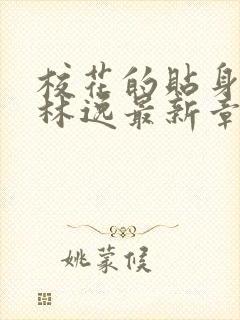 校花的贴身
林逸最新章
姚蒙候